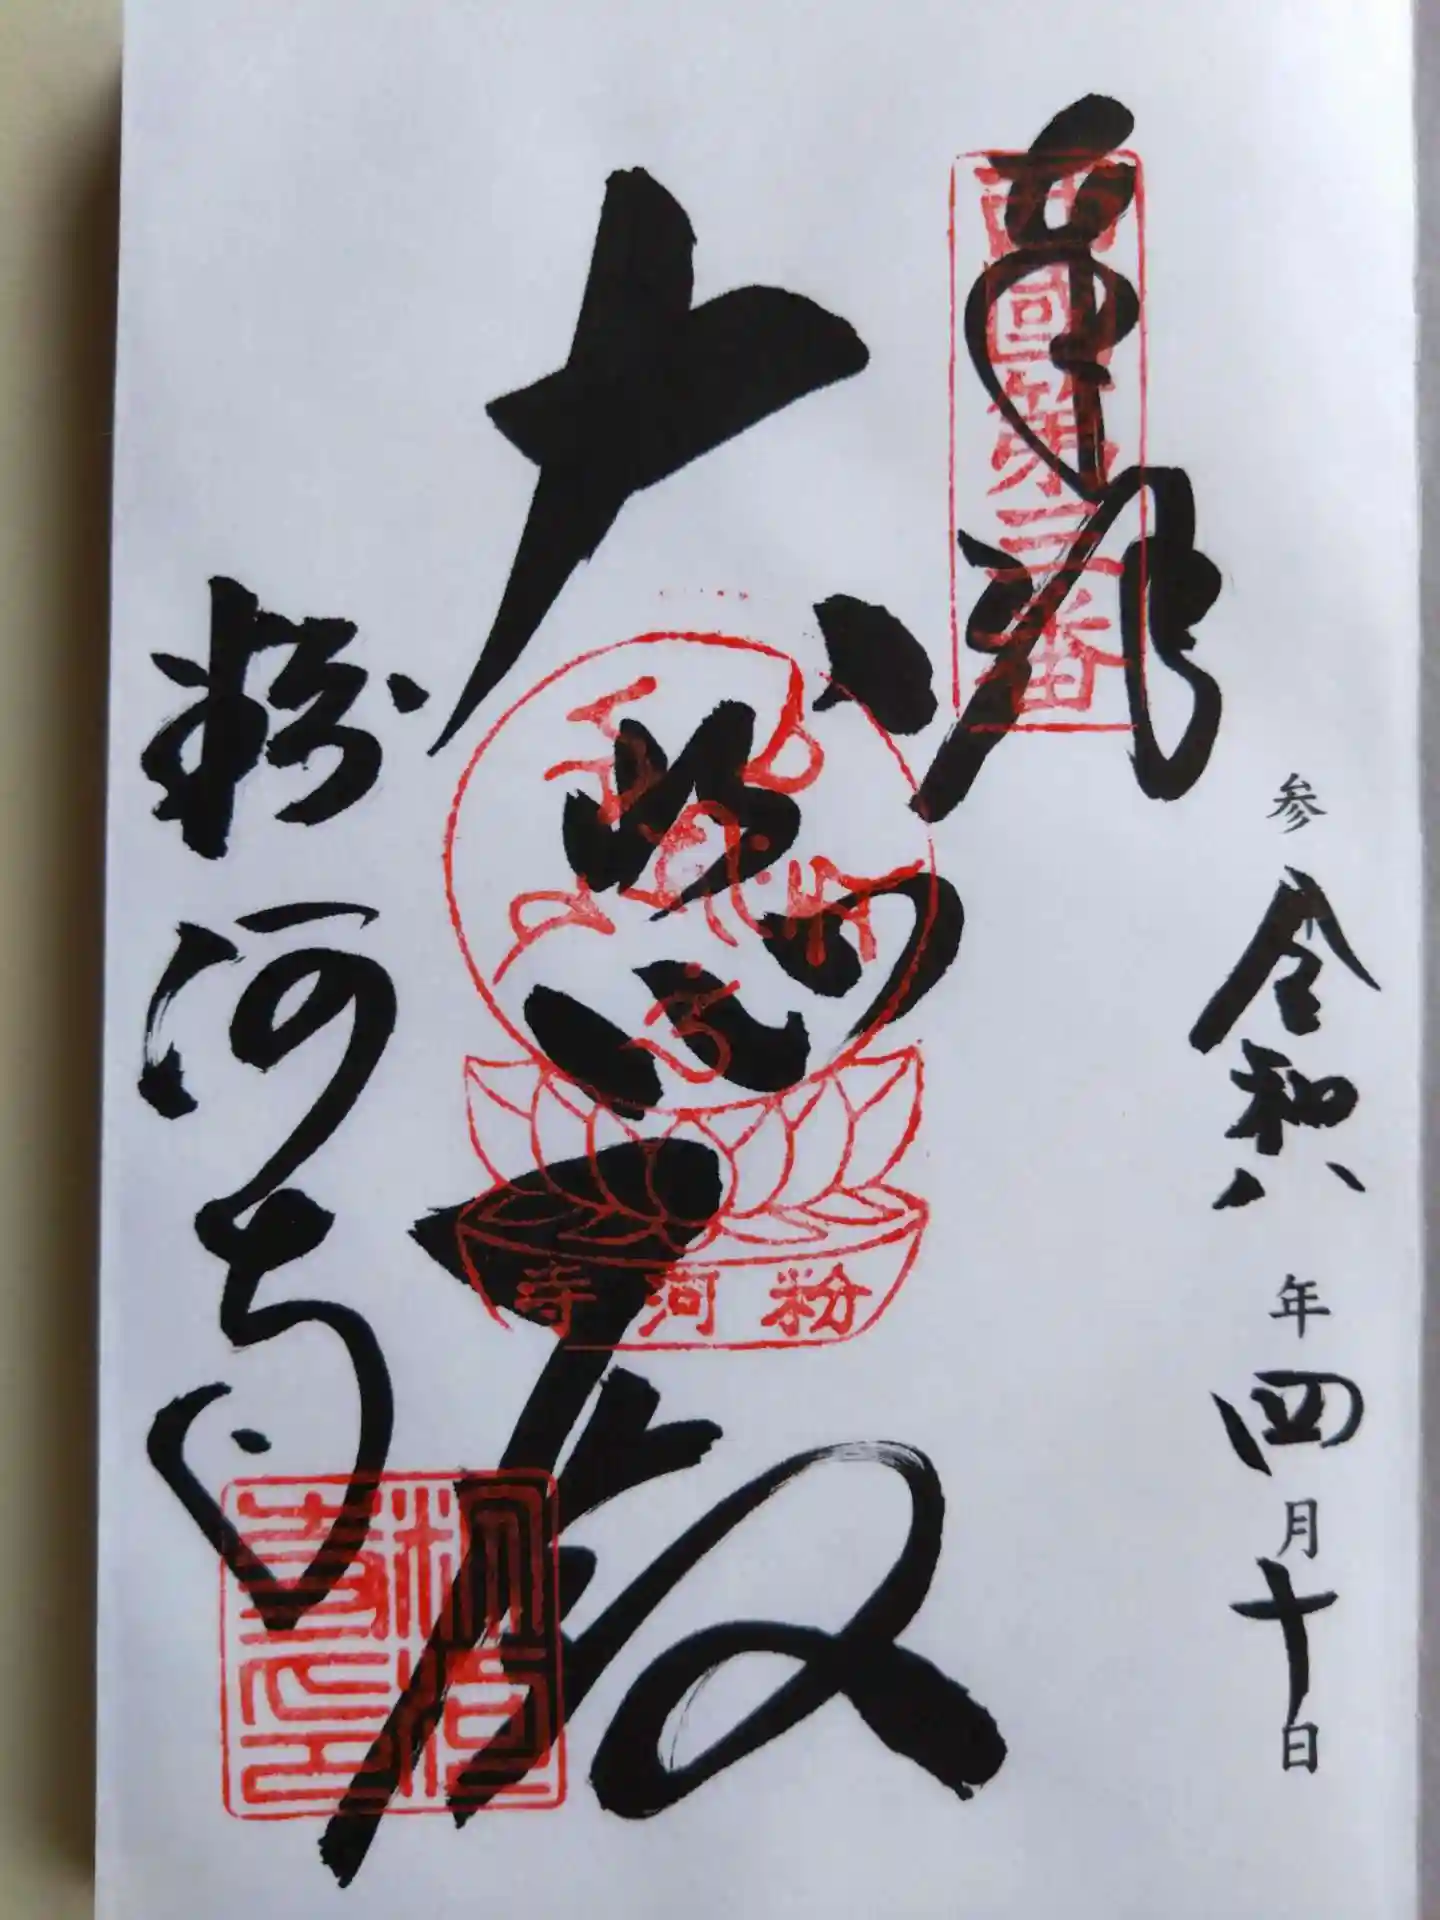 奉拝
西國第三番
参 令和八年四月十日
大悲殿
粉河寺
粉河寺
粉河寺印